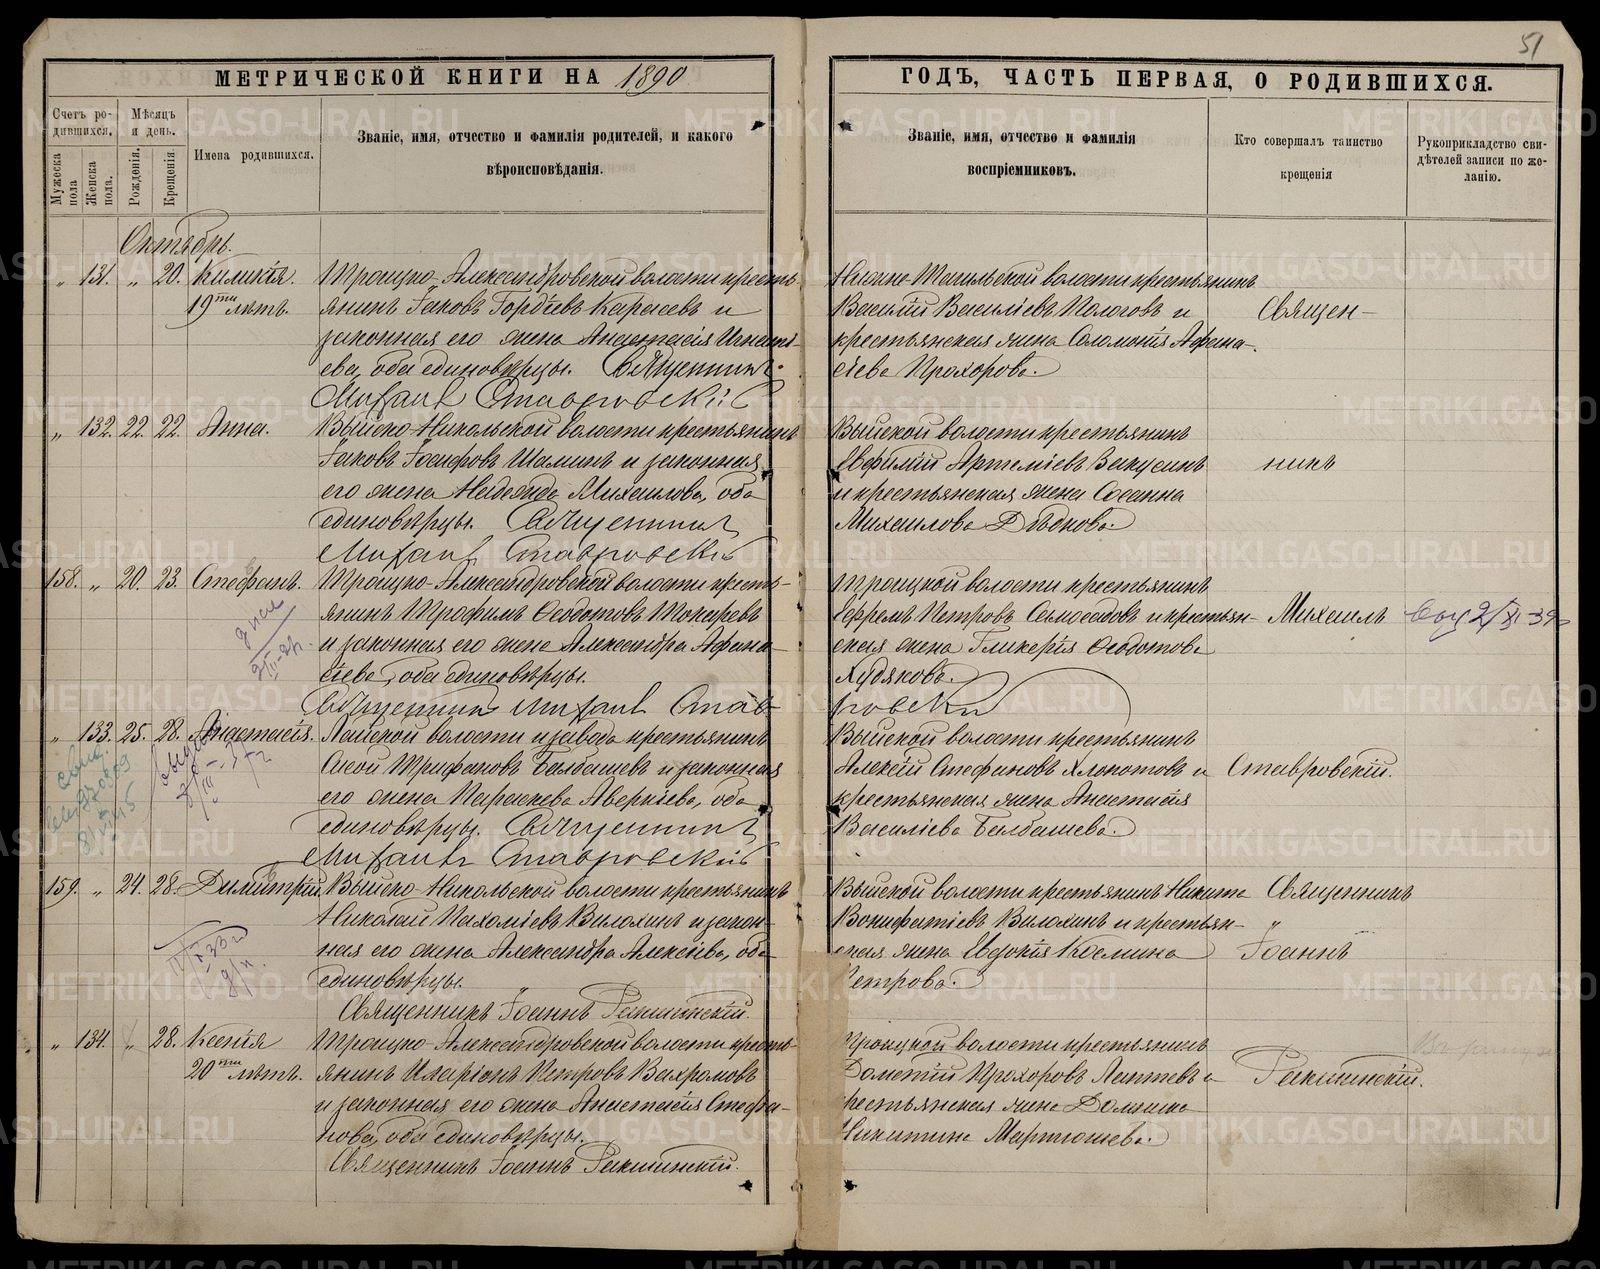 51
МЕТРИЧЕСКОЙ КНИГИ НА 1890
ГОДЪ, ЧАСТЬ ПЕРВАЯ, О РОДИВШИХСЯ.
Счетъ родившихся.
Мужеска пола
Женска пола.
Мѣсяцъ и день.
Рожденія.
Крещенія.
Имена родившихся.
Званіе, имя, отчество и фамилія родителей, и какого
вѣроисповѣданія.
Званіе, имя, отчество и фамилія
воспріемниковъ.
Кто совершалъ таинство
крещенія
Рукоприкладство сви-
дѣтелей записи по же-
ланію.
Октябрь.
„ 131. „ 20. Киликія.
19ти лѣтъ.
Троицко-Александровской волости кресть-
янинъ Іаковъ Гордіевъ Карасевъ и
законная его жена Анастасія Игнать-
ева, оба единовѣрцы. Священникъ
Михаилъ Ставровскій
Нижне-Тагильской волости крестьянинъ
Василій Василіевъ Пологовъ и
крестьянская жена Соломонія Афана-
сіева Прохорова.
Священ-
„ 132. 22. 22. Анна.
Выйско-Никольской волости крестьянинъ
Іаковъ Іосифовъ Шаминъ и законная
его жена Надежда Михаилова, оба
единовѣрцы. Священникъ
Михаилъ Ставровскій
Выйской волости крестьянинъ
Евфимій Артеміевъ Вакусинъ
и крестьянская жена Сосанна
Михаилова Дѣдкова.
никъ
158. „ 20. 23. Стефанъ.
Троицко-Александровской волости кресть-
янинъ Трофимъ Ѳеодотовъ Токаревъ
и законная его жена Александра Афана-
сіева, оба единовѣрцы.
Священникъ Михаилъ Став-
ровскій
Троицкой волости крестьянинъ
Ефремъ Петровъ Самосадовъ и крестьян-
ская жена Гликерія Ѳеодотова
Худякова.
Михаилъ
„ 133. 25. 28. Анастасія.
Лайской волости и завода крестьянинъ
Сысой Трифоновъ Балбашевъ и законная
его жена Параскева Аверкіева, оба
единовѣрцы. Священникъ
Михаилъ Ставровскій
Выйской волости крестьянинъ
Алексій Стефановъ Хлопотовъ и
крестьянская жена Анастасія
Василіева Балбашева.
Ставровскій.
159. „ 24. 28. Димитрій.
Выйско-Никольской волости крестьянинъ
Николай Пахоміевъ Вилохинъ и закон-
ная его жена Александра Алексіева, оба
единовѣрцы.
Священникъ Іоаннъ Ракшинскій.
Выйской волости крестьянинъ Никита
Вонифатіевъ Вилохинъ и крестьян-
ская жена Евдокія Космина
Петрова.
Священникъ
„
Іоаннъ
„ 134. „ 28. Ксенія
20ти лѣтъ.
Троицко-Александровской волости кресть-
янинъ Иларіонъ Петровъ Вахромовъ
и законная его жена Анастасія Стефа-
нова, оба единовѣрцы.
Священникъ Іоаннъ Ракшинскій.
Троицкой волости крестьянинъ
Дометій Прохоровъ Лаптевъ и
крестьянская жена Домника
Никитина Мартюшева.
Ракшинскій.